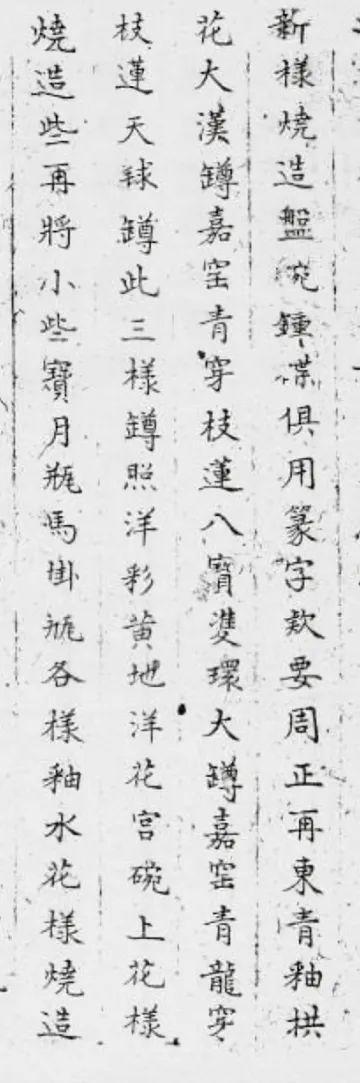 新樣燒造盤碗鍾碟俱用篆字款要周正再東青釉拱
花大漢罇嘉窑青穿枝蓮八寶雙環大罇嘉窑青龍穿
枝蓮天球罇此三樣罇照洋彩黄地洋花宫碗上花樣
燒造些再將小些寶月瓶馬掛瓶各樣釉水花樣燒造